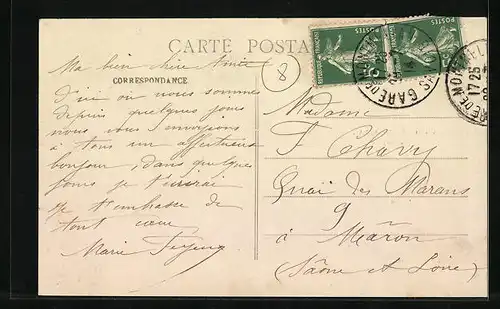 CARTE POSTALE
CORRESPONDANCE
8
Ma bien chère Amie
D'ici où nous sommes
depuis quelques jours
nous vous envoyons
à tous un affectueux
bonjour, dans quelques
jours je t'écrirai
je t'embrasse de
tout cœur
Marie
Madame
F Chavy
Quai des Marans
9
à Mâcon
(Saône et Loire)
POSTES
POSTES
GARE DE
17 25